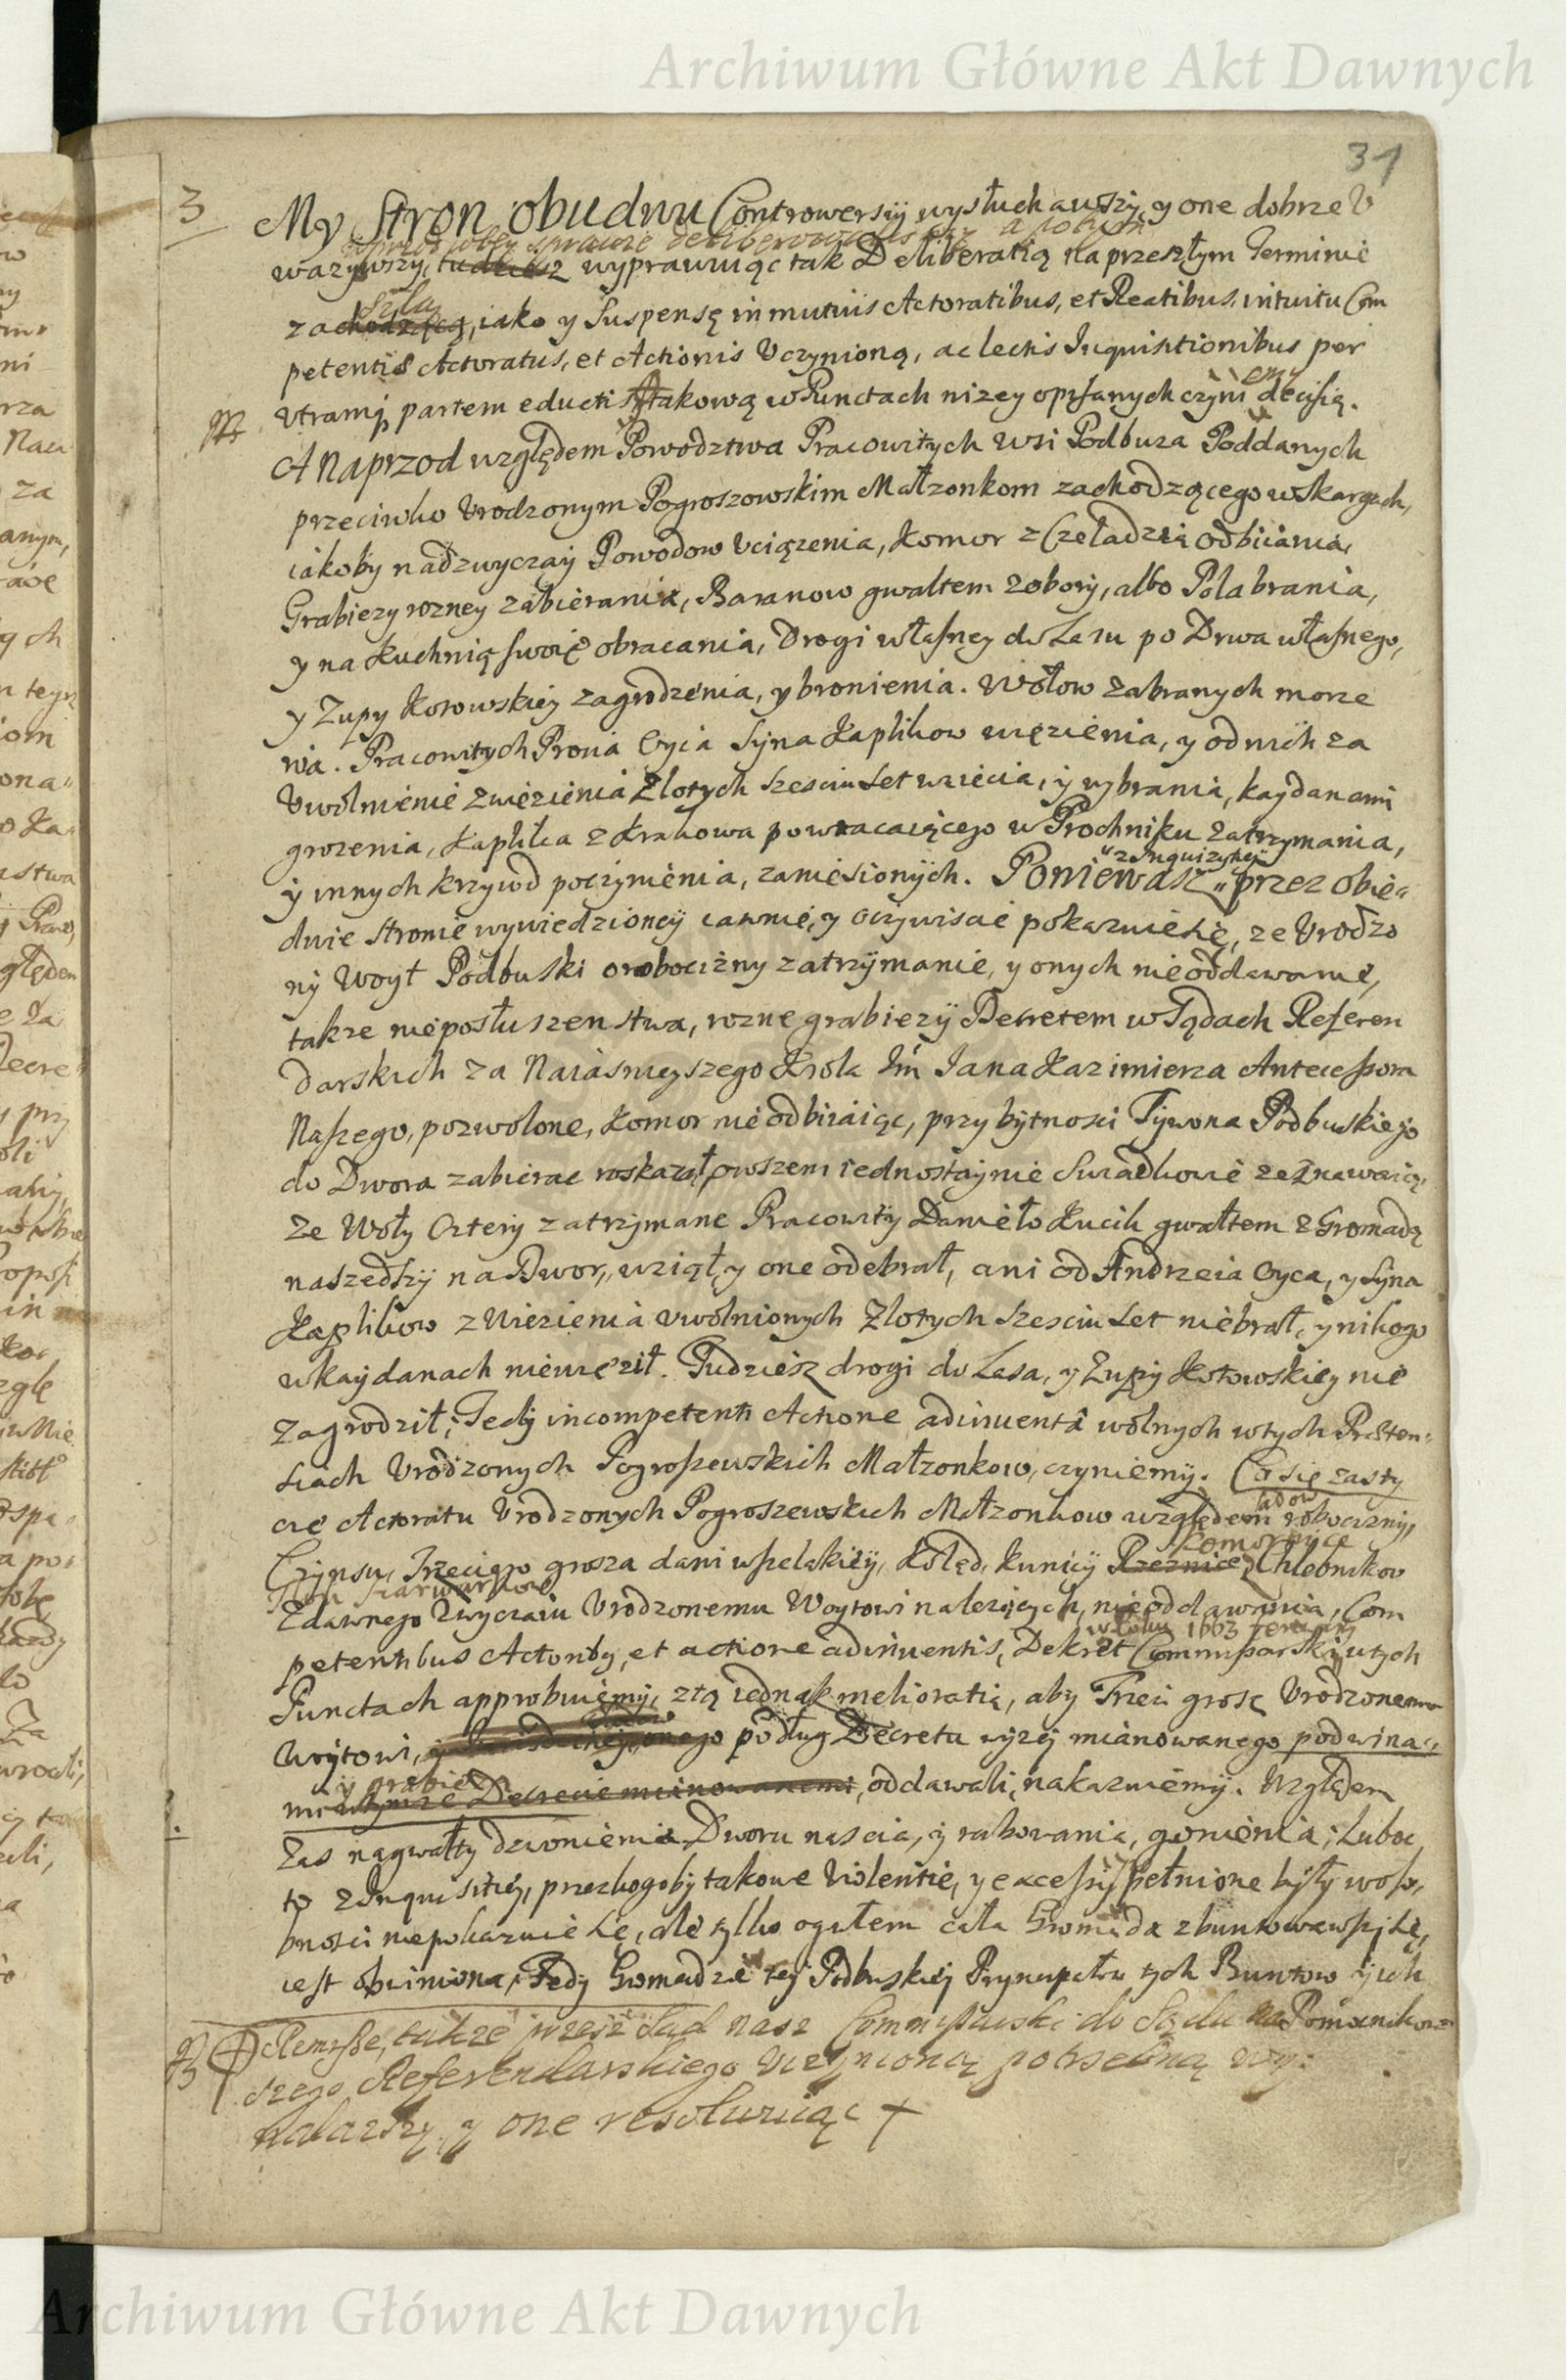 Archiwum Główne Akt Dawnych
31
3
My Stron obudwu Controwersÿ wysłuchawszy, y one dobrze V
wprzod wsprawie deliberowawszy a potym
ważywszy, tudziesz wyprawuiąc tak Deliberatią na przeszłym Terminie
szłą
zachodzącą, iako y Suspensę in mutuis Actoratibus, et Reatibus, intuitu Com
petentis Actoratus, et Actionis Vczynioną, ac lectis Inquisitionibus per
emy
Vtramq partem eductis takową w Punctach nizey opisanych czyni decisią.
A Naprzod względem Powodztwa Pracowitych wsi Podbuza Poddanych
przeciwko Vrodzonym Pogroszowskim Małzonkom zachodzącego w skargach,
iakoby nadzwyczaÿ Powodow Vciązenia, Komor z Czeladzią odbiiania,
Grabiezy rozney zabierania, Baranow gwałtem z obory, albo Pola brania,
y na Kuchnią swoię obracania, Drogi własney do Lasu po Drwa własnego,
y Zupy Kotowskiey zagrodzenia, y bronienia. Wołow zabranych morze
nia. Pracowitych Pronia Oyca Syna Kaplikow więzienia, y od nich za
Vwolnienie z więzienia Złotych Szesciu Set wzięcia, ÿ wybrania, kaydanami
grozenia, Kaplika z Krakowa powracaiącego w Prochniku zatrzymania,
z Inquizytiey
ÿ innych krzywd poczynienia, zaniesionÿch. Poniewasz przez obie
dwie stronie wywiedzioneÿ iawnie, y oczywiscie pokazuie się, ze Vrodzo
nÿ Woyt Podbuski o robociznÿ zatrzÿmanie, y onych nieoddawanie,
takze nieposłuszenstwa, rozne grabiezÿ Decretem w Sądach Referen
darskich za Naiasnieyszego Krola Jm Jana Kazimierza Antecessora
Naszego, pozwolone, Komor nie odbiiaiąc, przy bÿtnosci Tÿwona Podbuskiego
do Dwora zabierac roskazał, owszem iednostaynie Swiadkowie zeznawaią,
Ze Woły Czterÿ zatrzymane Pracowity Daniełо Kucik gwałtem z Gromadą
naszedszÿ na Dwor, wziął, y one odebrał, ani od Andrzeia Oyca, y Syna
Kaplikow z Więzienia vwolnionych Złotych Szesciu Set niebrał, y nikogo
w kaydanach niewięził. Tudziesz drogi do Lasa, y Zupÿ Kotowskiey nie
zagrodził; Tedÿ incompetenti Actione adinventa wolnych w tych Praeten
siach Vrodzonych Pogroszewskich Małzonkow, czyniemÿ. Co się zasty
cie Actoratu Vrodzonych Pogroszewskich Małzonkow względem robociznÿ,
Komornice
Czynsu, Trzeciego grosza dani wszelakieÿ, Kolęd, Kunicÿ Rzeznice, Chlebnikow
Z dawnego Zwyczaiu Vrodzonemu Woytowi nalezących, nieoddawania, Com
w Roku 1663 ferowany
petentibus Actoribq, et actione adinventis, Dekret Commissarski, w tych
Punctach approbuiemÿ, z tą iednak melioratią, aby Trzeci grosz Vrodzonemu
Woytowi, podług Decretu wyzey mianowanego pod wina
mi
y grabieza
w tymze Decrecie mianowanemi, oddawali, nakazuiemÿ. Względem
Zas na gwałtÿ dzwonienia Dworu nascia, ÿ rabowania, gonienia; Luboc
to z Inquisitiey, przez kogobÿ takowe Violentie, y excessÿ pełnione bÿłÿ w oso
bnosci niepokazuie się, ale tylko ogułem cała Gromada zbuntowawszÿ się,
iest obwiniona, Tedy Gromadzie teÿ Podbuskieÿ Prÿncÿpałow tych Buntow ÿ ich
Pomocnikow
Remisse, takze przez Sąd nasz Commissarski do Sądu na
szego Referendarskiego Uczynioną potrzebną wy
nalazszy, y one resolwuiąc
Archiwum Główne Akt Dawnych